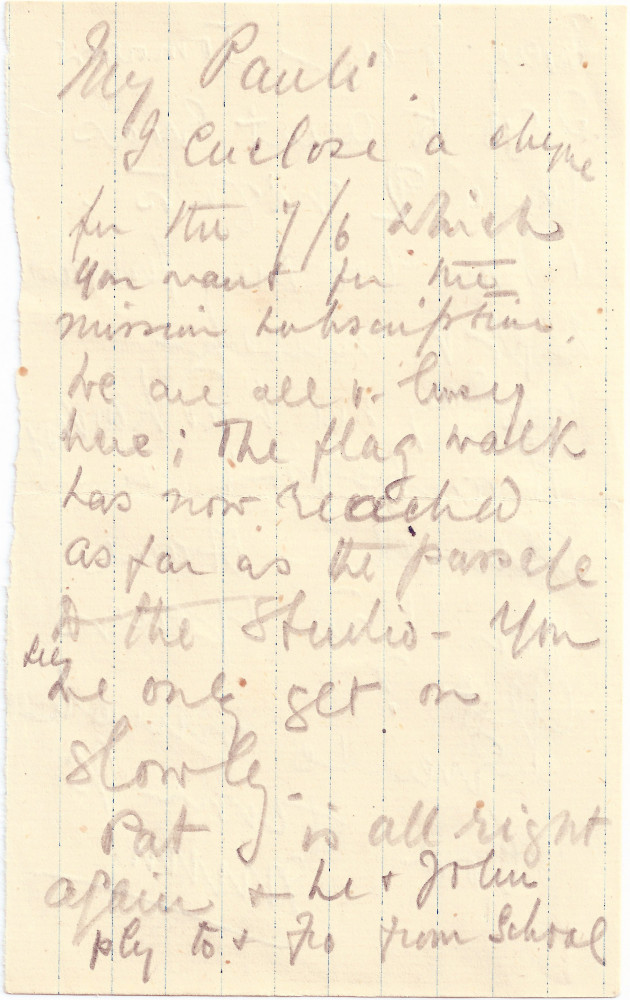 My Pauli.
I enclose a cheque
for the 7/6 which
you want for the
mission subscription.
We are all v. busy
here; The flag walk
has now reached
as far as the passage
to the Studio - You
see
we only get on
slowly.
Pat is all right
again & he & John
ply to & fro from School